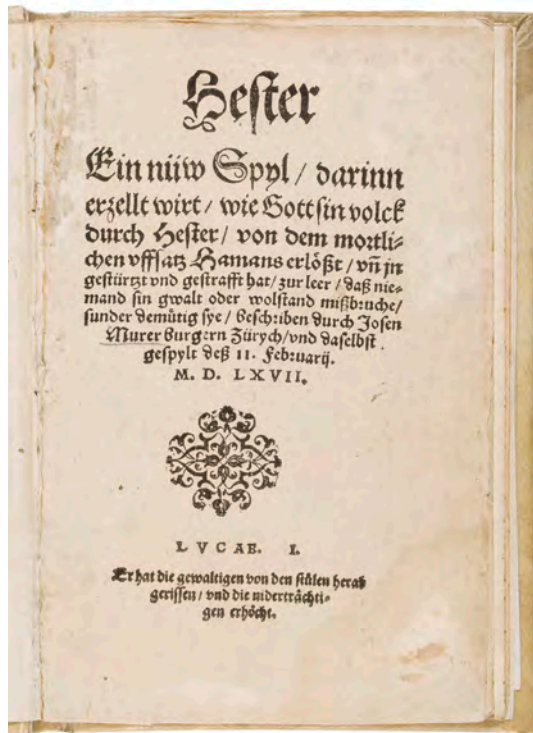 Hester
Ein nüw Spyl / darinn
erzellt wirt / wie Gott sin volck
durch Hester / von dem mortli⸗
chen vffsatz Hamans erlößt / vñ jn
gestürtzt vnd gestrafft hat / zur leer / daß nie⸗
mand sin gwalt oder wolstand mißbruche /
sunder demütig sye / beschriben durch Josen
Murer burgern Zürych / vnd daselbst
gespylt deß 11. Februarij.
M. D. LXVII.
LVCAE. I.
Er hat die gewaltigen von den stülen herab
gerissen / vnd die niderträchti⸗
gen erhöcht.